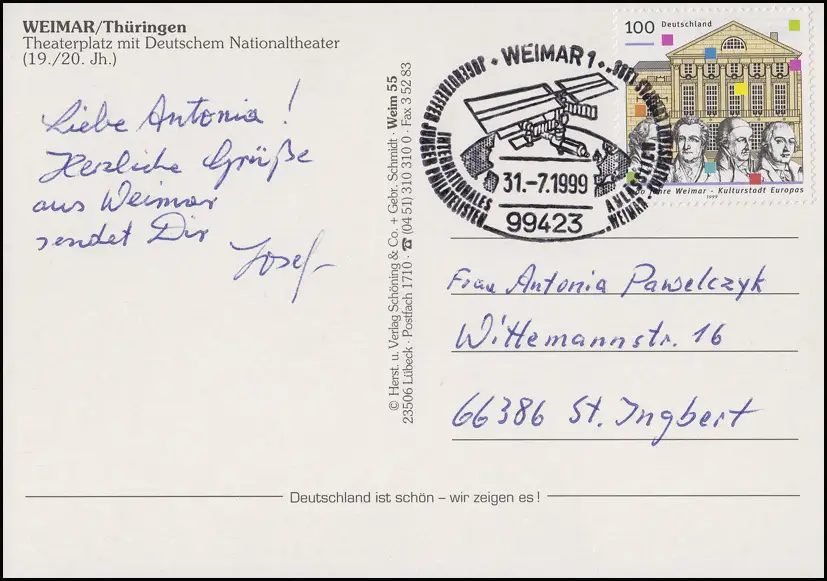 WEIMAR/Thüringen
Theaterplatz mit Deutschem Nationaltheater
(19./20. Jh.)
Liebe Antonia!
Herzliche Grüße
aus Weimar
sendet Dir
Josef
© Herst. u. Verlag Schöning & Co. + Gebr. Schmidt · Weim 55
23506 Lübeck · Postfach 1710 · ☎ (04 51) 310 310 0 · Fax 3 52 83
WEIMAR 1
INTERNATIONALES
JUNGER PHILATELISTEN
31.-7.1999
99423
ANLÄSSLICH
WEIMAR -
100 Deutschland
Jahre Weimar - Kulturstadt Europas
1999
Frau Antonia Pawelczyk
Wittemannstr. 16
66386 St. Ingbert
Deutschland ist schön – wir zeigen es!